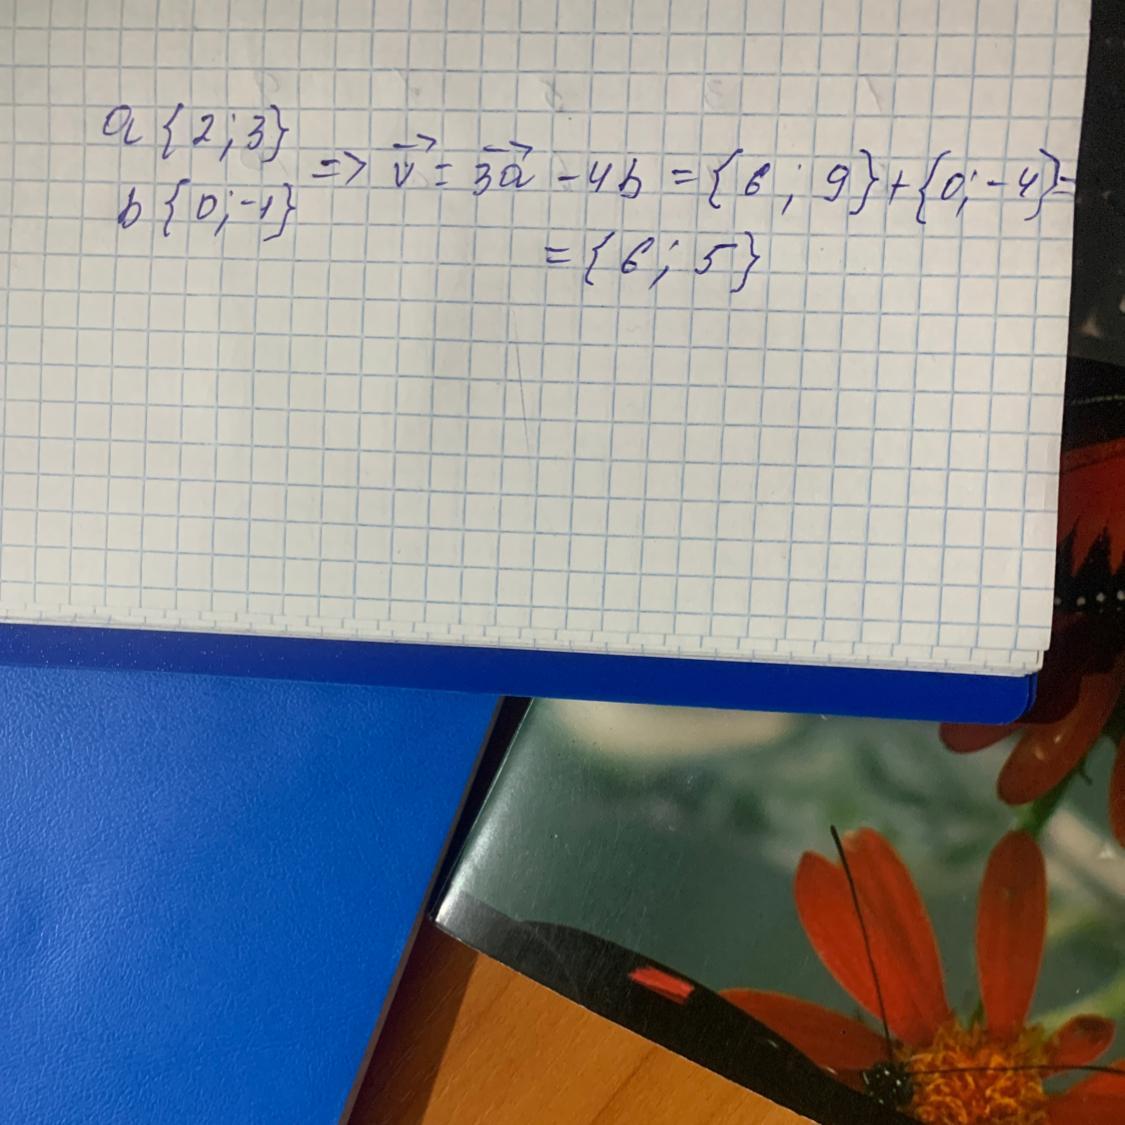 a {2; 3}
b {0; -1}
=> v⃗ = 3a⃗ - 4b = {6; 9} + {0; -4} =
= {6; 5}